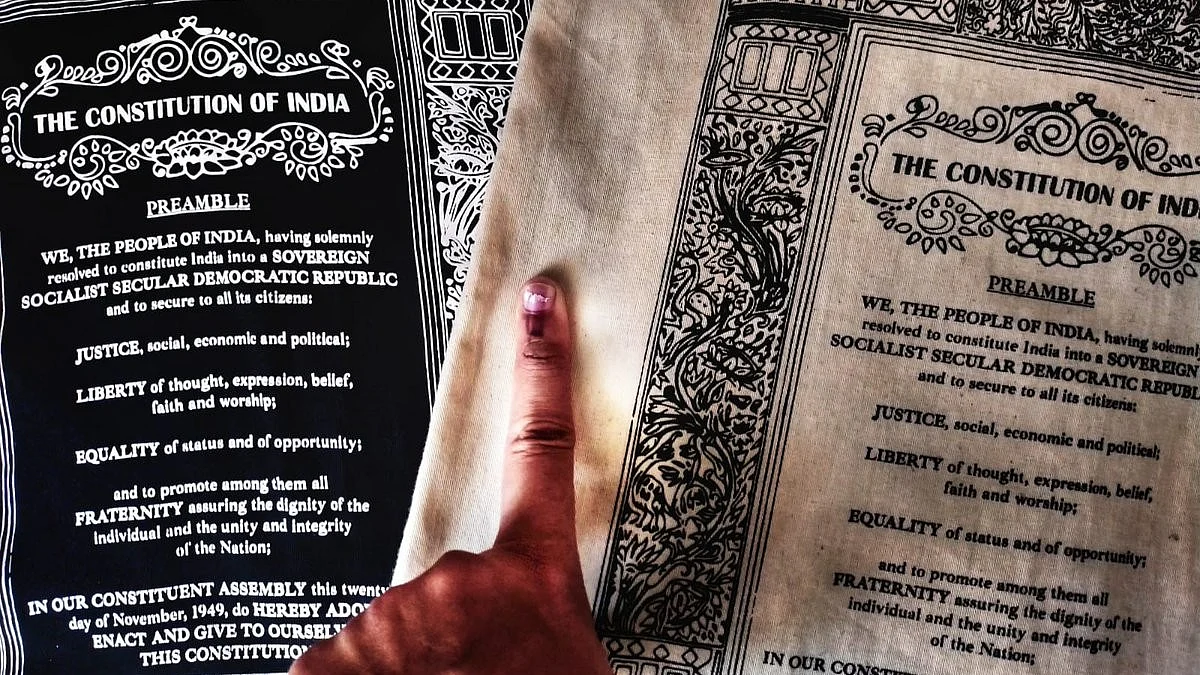 THE CONSTITUTION OF INDIA
PREAMBLE
WE, THE PEOPLE OF INDIA, having solemnly
resolved to constitute India into a SOVEREIGN
SOCIALIST SECULAR DEMOCRATIC REPUBLIC
and to secure to all its citizens:
JUSTICE, social, economic and political;
LIBERTY of thought, expression, belief,
faith and worship;
EQUALITY of status and of opportunity;
and to promote among them all
FRATERNITY assuring the dignity of the
individual and the unity and integrity
of the Nation;
IN OUR CONSTITUENT ASSEMBLY this twenty
day of November, 1949, do HEREBY
ENACT AND GIVE TO
THIS CONSTITUTION
THE CONSTITUTION OF
PREAMBLE
WE, THE PEOPLE OF INDIA, having solemnly
resolved to constitute India into a SOVEREIGN
SOCIALIST SECULAR DEMOCRATIC
and to secure to all its citizens:
JUSTICE, social, economic and political;
LIBERTY of thought, expression, belief,
faith and worship;
EQUALITY of status and of opportunity;
and to promote among them all
FRATERNITY assuring the dignity of the
individual and the unity and integrity
of the Nation;
IN OUR